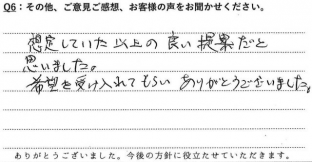 Q6：その他、ご意見ご感想、お客様の声をお聞かせください。
想定していた以上の良い提案だと
思いました。
希望を受け入れてもらい ありがとうございました。
ありがとうございました。今後の方針に役立たせていただきます。